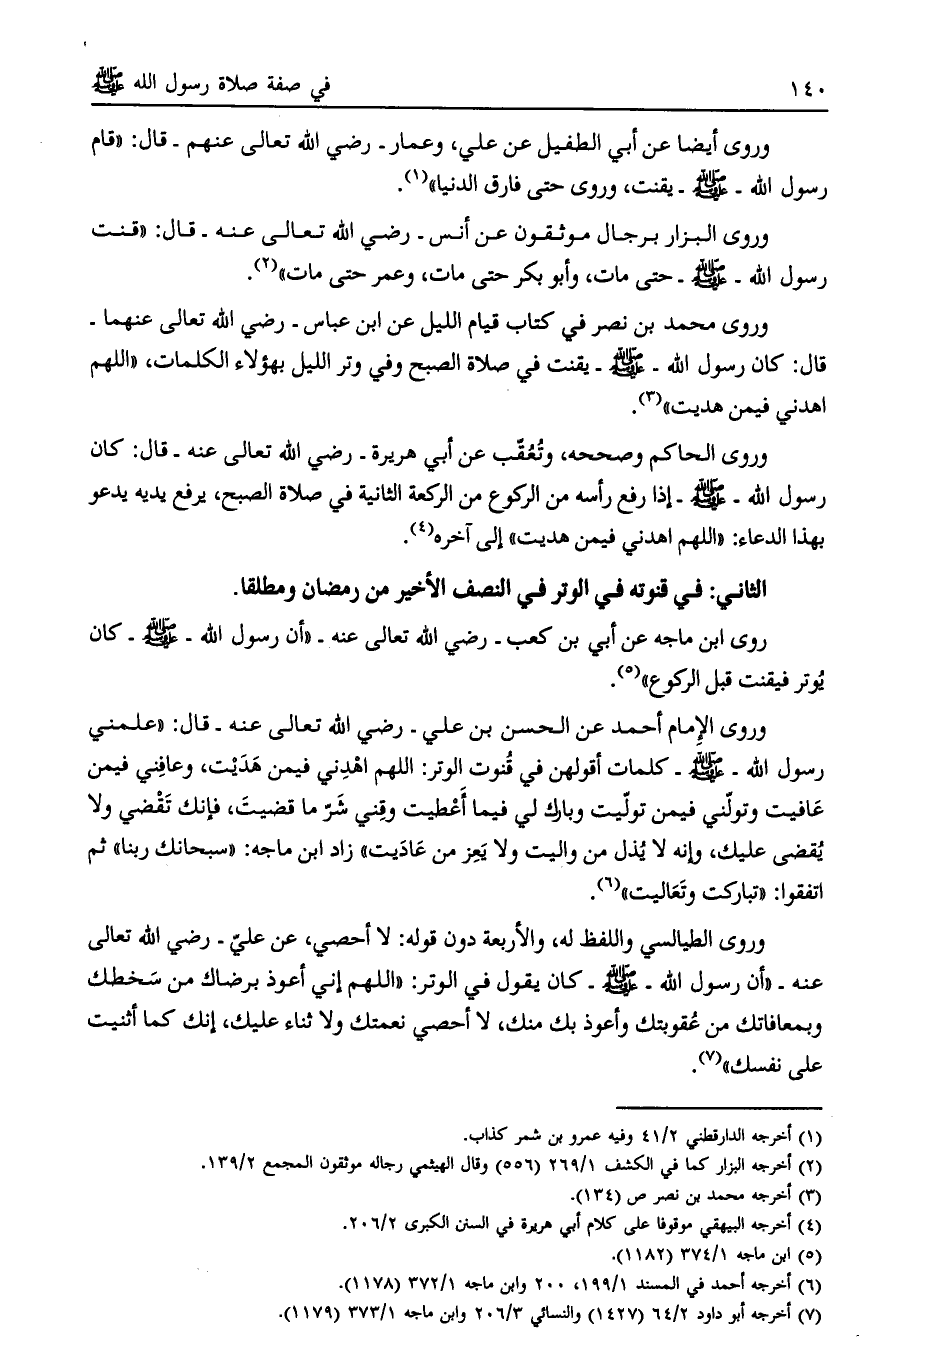 ١٤٠ في صفة صلاة رسول الله ﷺ
وروى أيضا عن أبي الطفيل عن علي، وعمار ـ رضي الله تعالى عنهم ـ قال: «قام
رسول الله ـ ﷺ ـ يقنت، وروى حتى فارق الدنيا»(١).
وروى البزار برجال موثقون عن أنس ـ رضي الله تعالى عنه ـ قال: «قنت
رسول الله ـ ﷺ ـ حتى مات، وأبو بكر حتى مات، وعمر حتى مات»(٢).
وروى محمد بن نصر في كتاب قيام الليل عن ابن عباس ـ رضي الله تعالى عنهما ـ
قال: كان رسول الله ـ ﷺ ـ يقنت في صلاة الصبح وفي وتر الليل بهؤلاء الكلمات، «اللهم
اهدني فيمن هديت»(٣).
وروى الحاكم وصححه، وتُعُقّب عن أبي هريرة ـ رضي الله تعالى عنه ـ قال: كان
رسول الله ـ ﷺ ـ إذا رفع رأسه من الركوع من الركعة الثانية في صلاة الصبح، يرفع يديه يدعو
بهذا الدعاء: «اللهم اهدني فيمن هديت» إلى آخره(٤).
الثاني: في قنوته في الوتر في النصف الأخير من رمضان ومطلقا.
روى ابن ماجه عن أبي بن كعب ـ رضي الله تعالى عنه ـ «أن رسول الله ـ ﷺ ـ كان
يُوتر فيقنت قبل الركوع»(٥).
وروى الإمام أحمد عن الحسن بن علي ـ رضي الله تعالى عنه ـ قال: «علمني
رسول الله ـ ﷺ ـ كلمات أقولهن في قُنوت الوتر: اللهم اهْدِني فيمن هَدَيْت، وعافِني فيمن
عَافيت وتولّني فيمن تولّيت وبارك لي فيما أَعْطيت وقِني شَرّ ما قضيتَ، فإنك تَقْضي ولا
يُقضى عليك، وإنه لا يُذل من واليت ولا يَعِز من عَادَيت» زاد ابن ماجه: «سبحانك ربنا» ثم
اتفقوا: «تباركت وتَعَاليت»(٦).
وروى الطيالسي واللفظ له، والأربعة دون قوله: لا أحصي، عن عليّ ـ رضي الله تعالى
عنه ـ «أن رسول الله ـ ﷺ ـ كان يقول في الوتر: «اللهم إني أعوذ برضاك من سَخطك
وبمعافاتك من عُقوبتك وأعوذ بك منك، لا أحصي نعمتك ولا ثناء عليك، إنك كما أثنيت
على نفسك»(٧).
(١) أخرجه الدارقطني ٤١/٢ وفيه عمرو بن شمر كذاب.
(٢) أخرجه البزار كما في الكشف ٢٦٩/١ (٥٥٦) وقال الهيثمي رجاله موثقون المجمع ١٣٩/٢.
(٣) أخرجه محمد بن نصر ص (١٣٤).
(٤) أخرجه البيهقي موقوفا على كلام أبي هريرة في السنن الكبرى ٢٠٦/٢.
(٥) ابن ماجه ٣٧٤/١ (١١٨٢).
(٦) أخرجه أحمد في المسند ١٩٩/١، ٢٠٠ وابن ماجه ٣٧٢/١ (١١٧٨).
(٧) أخرجه أبو داود ٦٤/٢ (١٤٢٧) والنسائي ٢٠٦/٣ وابن ماجه ٣٧٣/١ (١١٧٩).